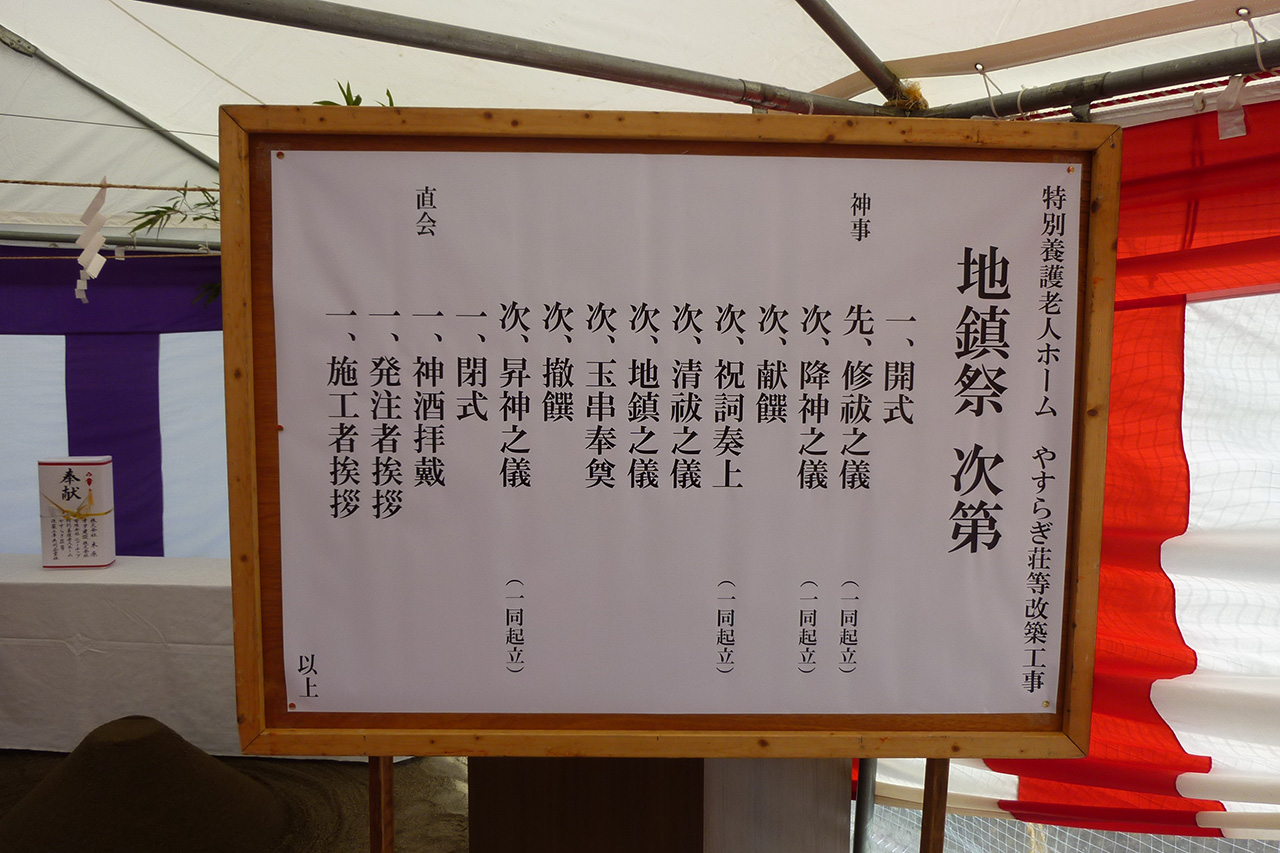 特別養護老人ホーム　やすらぎ荘等改築工事
地鎮祭　次第
神事
一、開式
先、修祓之儀　（一同起立）
次、降神之儀　（一同起立）
次、献饌
次、祝詞奏上　（一同起立）
次、清祓之儀
次、地鎮之儀
次、玉串奉奠
次、撤饌
次、昇神之儀　（一同起立）
一、閉式
直会
一、神酒拝戴
一、発注者挨拶
一、施工者挨拶
以上
奉献